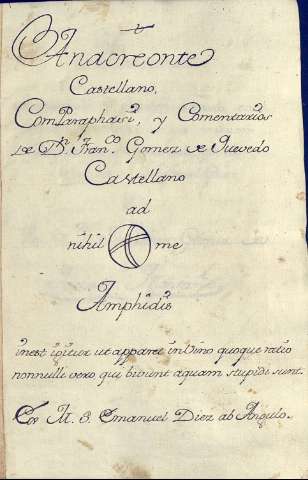 Anacreonte
Castellano,
Con Paraphasis, y Comentarios
de Dn. Franco. Gomez de Quevedo
Castellano
ad
nihil me
Amphidis
inest igitur ut apparet in Vino quoque ratio
nonnulli vero qui bivunt aquam stupidi sunt.
M. S. Emanuel Diez ab Angulo.